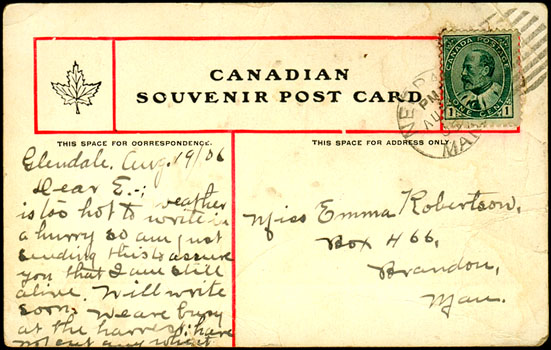 CANADIAN
SOUVENIR POST CARD
CANADA POSTAGE
1 ONE CENT 1
NEEPAWA
PM
AU
MAN
THIS SPACE FOR CORRESPONDENCE.
THIS SPACE FOR ADDRESS ONLY
Glendale, Aug. 19/06
Dear E—;
weather
is too hot to write in
a hurry so am just
sending this to assure
you that I am still
alive. Will write
soon. We are busy
at the harvest; have
not cut any wheat
Miss Emma Robertson,
Box 466,
Brandon,
Man.